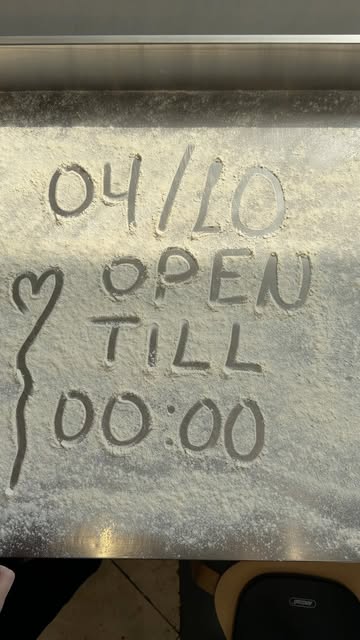 04/10
OPEN
TILL
00:00